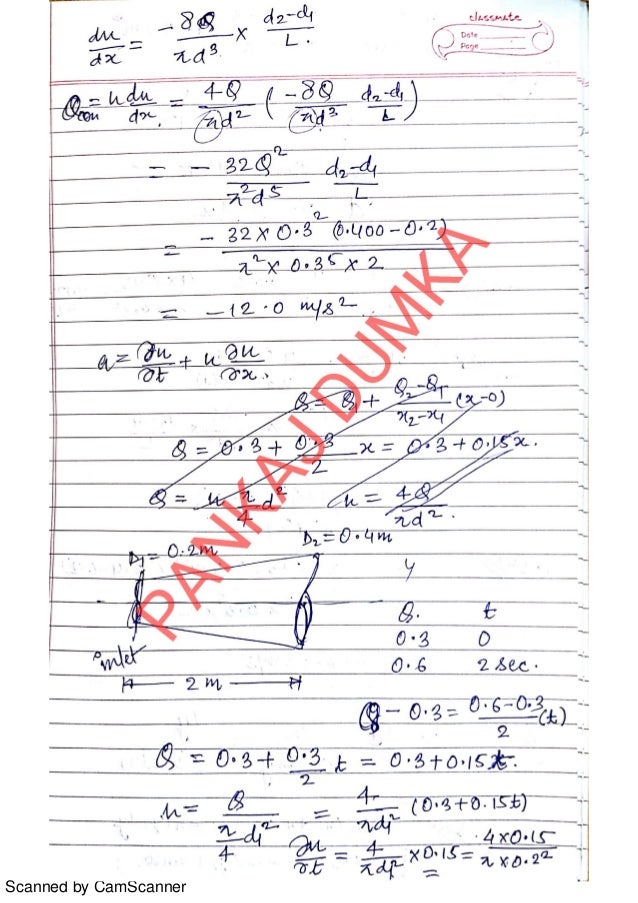 classmate
Date
Page
du/dx = -8Q/πd³ × d₂-d₁/L.
Qcon = u du/dx. = 4Q/πd² (-8Q/πd³ d₂-d₁/L)
= - 32Q²/π²d⁵ d₂-d₁/L.
= - 32 × 0.3² (0.400-0.2)/π² × 0.3⁵ × 2
= -12.0 m/s²
a = ∂u/∂t + u ∂u/∂x.
Q = Q₁ + Q₂-Q₁/x₂-x₁ (x-0)
Q = 0.3 + 0.3/2 x = 0.3 + 0.15x.
Q = u π/4 d² u = 4Q/πd².
D₁ = 0.2m D₂ = 0.4m
Q. t
0.3 0
0.6 2 sec.
inlet
2 m
Q - 0.3 = 0.6-0.3/2 (t)
Q = 0.3 + 0.3/2 t = 0.3 + 0.15t.
u = Q/π/4 d₁² = 4/πd₁² (0.3+0.15t)
∂u/∂t = 4/πd₁² × 0.15 = 4×0.15/π×0.2²
=
PANKAJ DUMKA
Scanned by CamScanner